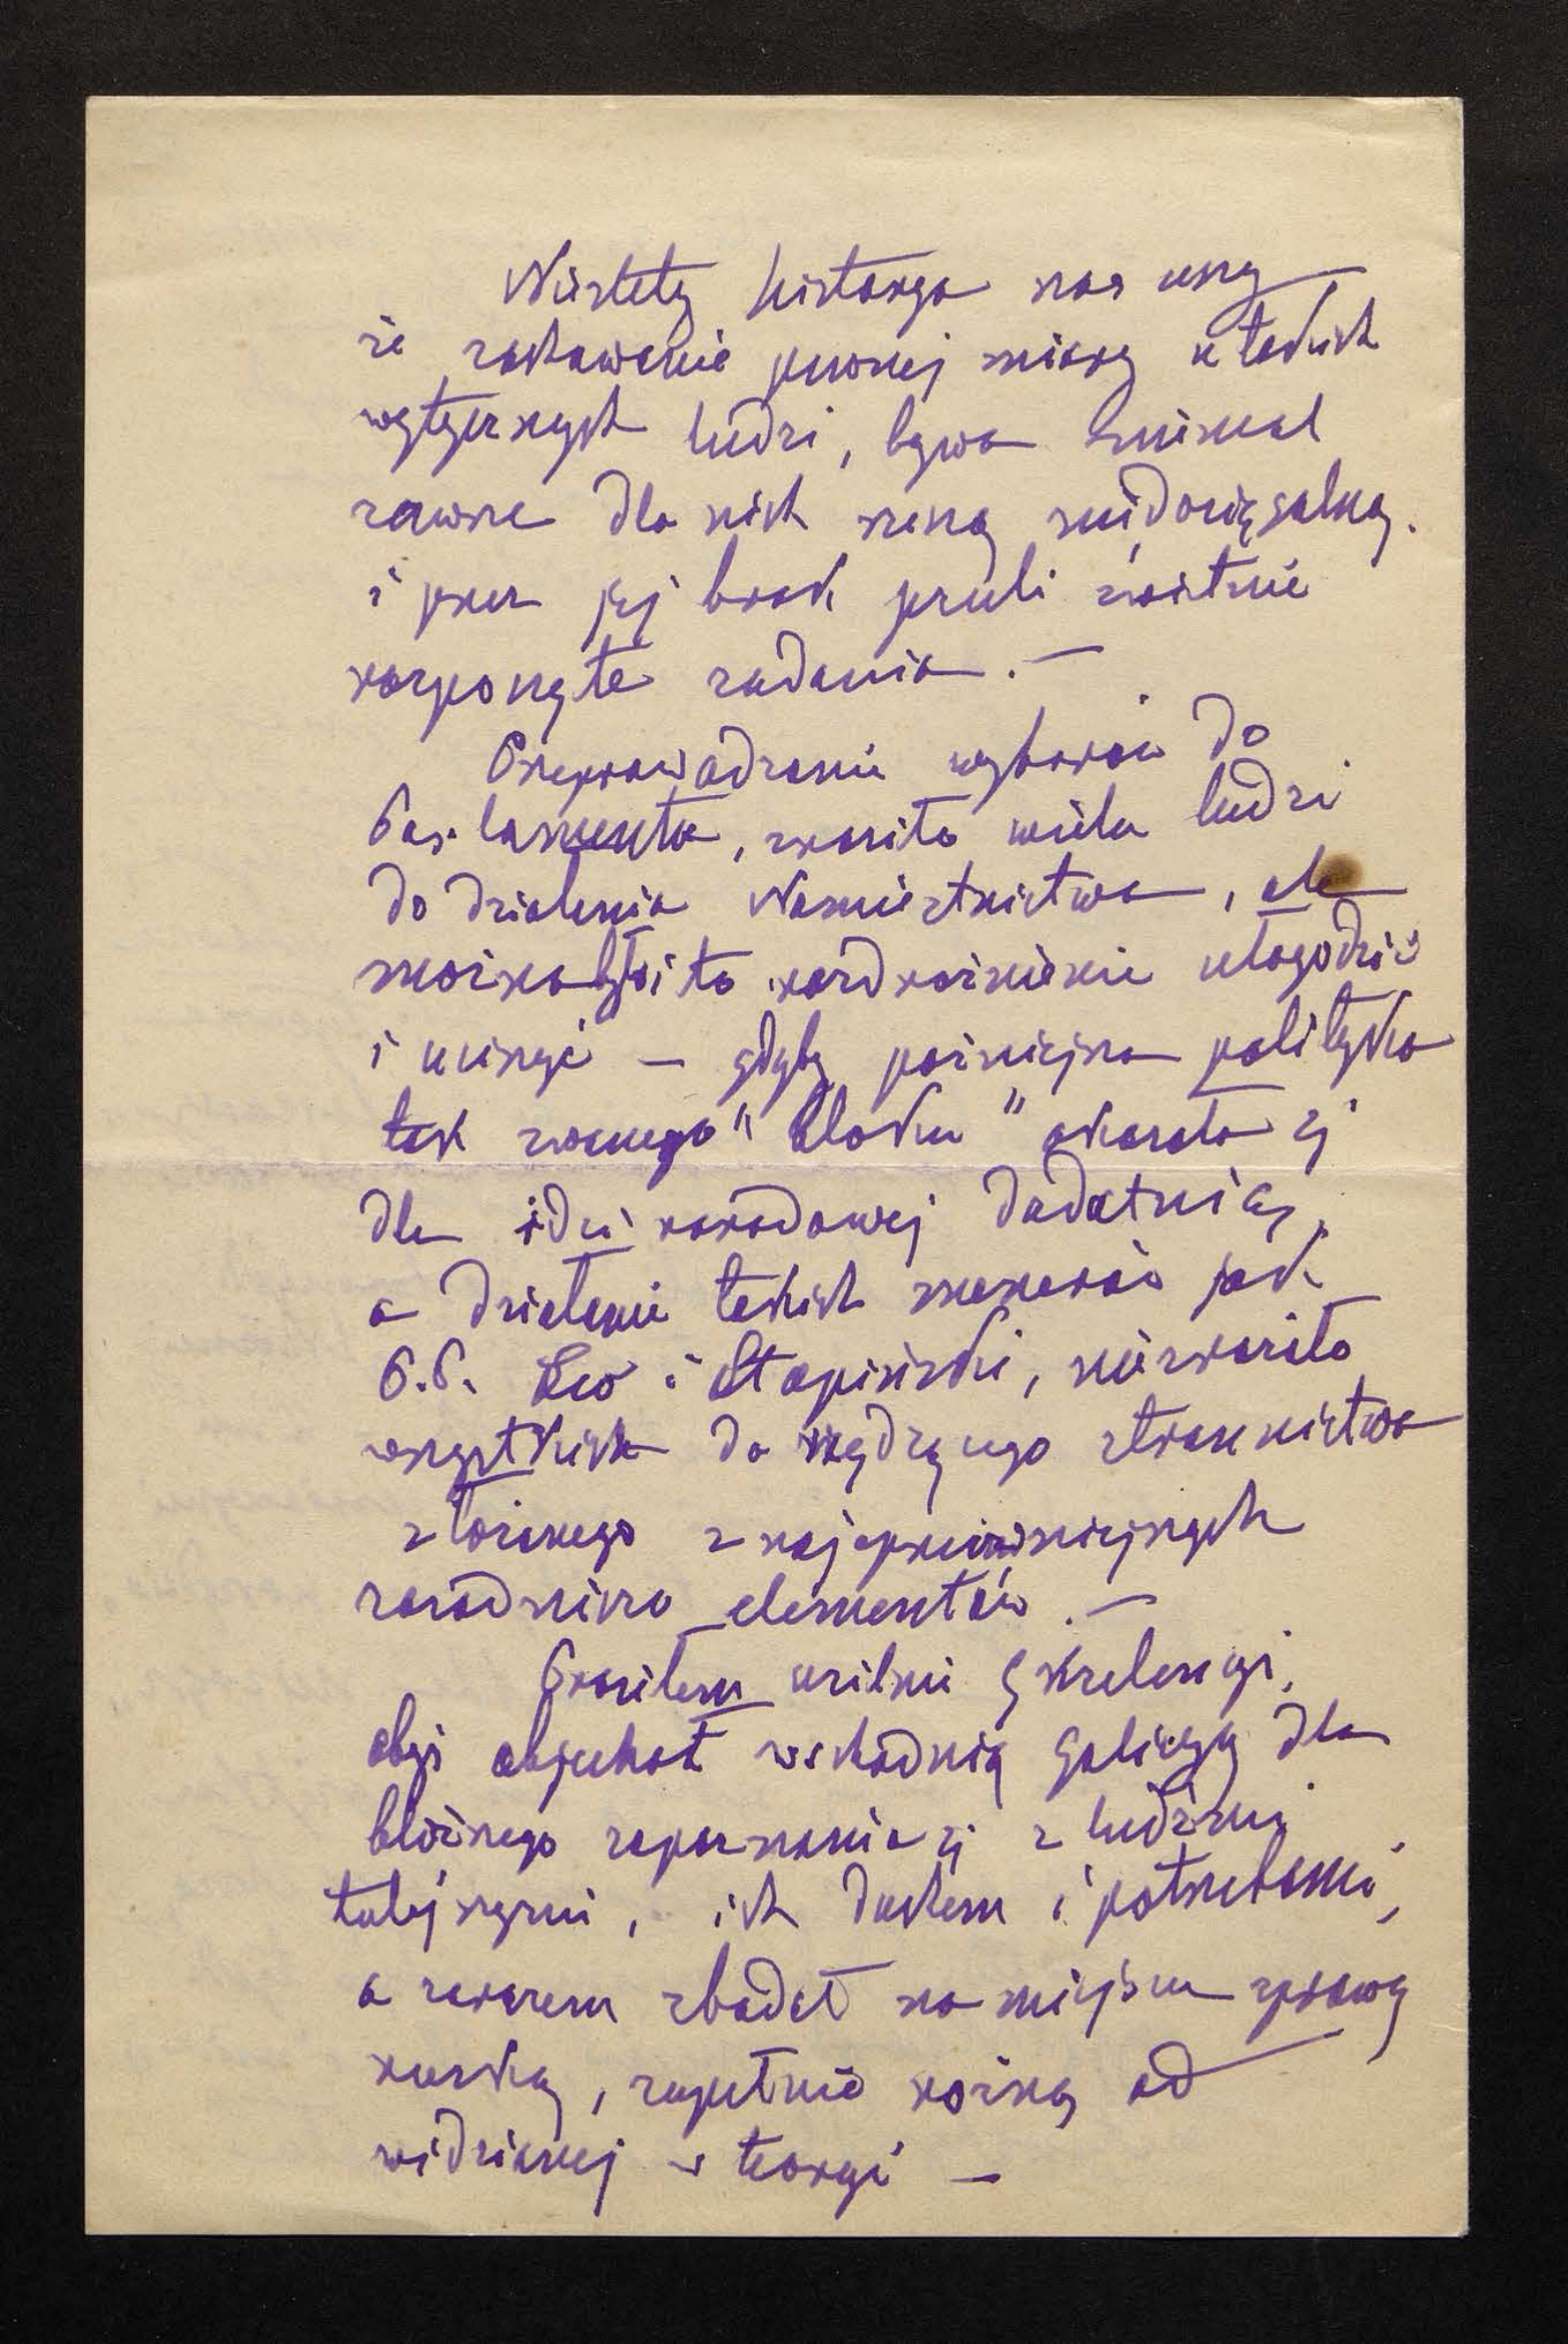 Niestety historya nas uczy
że zachowanie pewnej miary u takich
wytycznych ludzi, bywa niemal
zawsze dla nich rzeczą niedosięgalną.
i przez jej brak psuli świetnie
rozpoczęte zadania. —
Przeprowadzenie wyborów do
Parlamentu, zraziło wielu ludzi
do działania Namiestnictwa, ale
można było to rozdrażnienie ułagodzić
i uciszyć — gdyby poźniejsza polityka
tak zwanego "bloku" okazała się
dla idei narodowej dodatnią,
a działanie takich menerów jak
P.P. Leo i Stapiński, nie zraziło
wszystkich do rządzącego stronnictwa
złożonego z najsprzeczniejszych
zasadniczo elementów. —
Prosiłem usilnie Excelencyi,
abyś objechał wschodnią Galicyę dla
bliższego zapoznania się z ludźmi
tutejszymi, ich duchem i potrzebami,
a zarazem zbadał na miejscu sprawę
ruską, zupełnie rożną od
widzianej w teoryi —